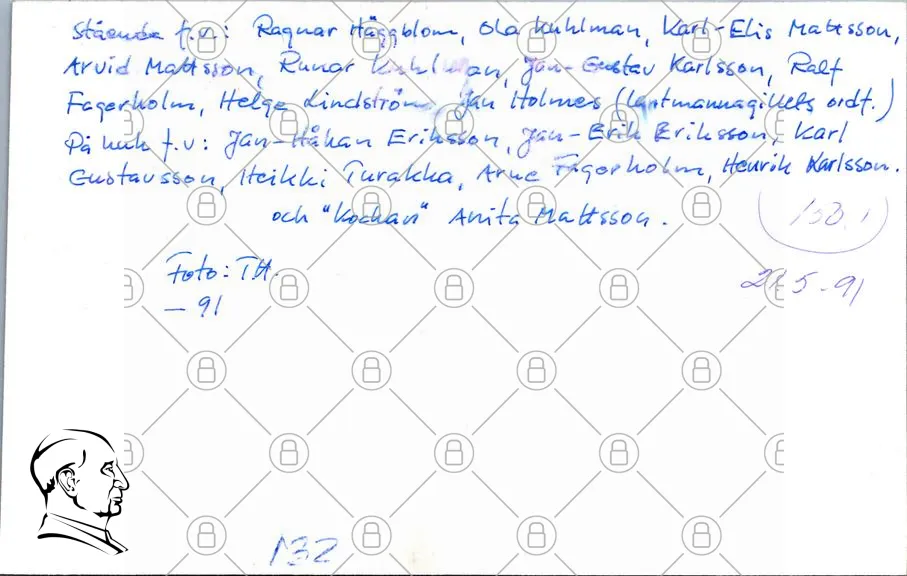 Stående f.v.: Ragnar Häggblom, Ola Kuhlman, Karl-Elis Mattsson,
Arvid Mattsson, Runar Kuhlman, Jan-Gustav Karlsson, Ralf
Fagerholm, Helge Lindström, Jan Holmes (lantmannagillets ordf.)
På huk f.v: Jan-Håkan Eriksson, Jan-Erik Eriksson, Karl
Gustavsson, Heikki Turakka, Arne Fagerholm, Henrik Karlsson.
och "Kockan" Anita Mattsson.
Foto: TH.
5-91
- 91
132